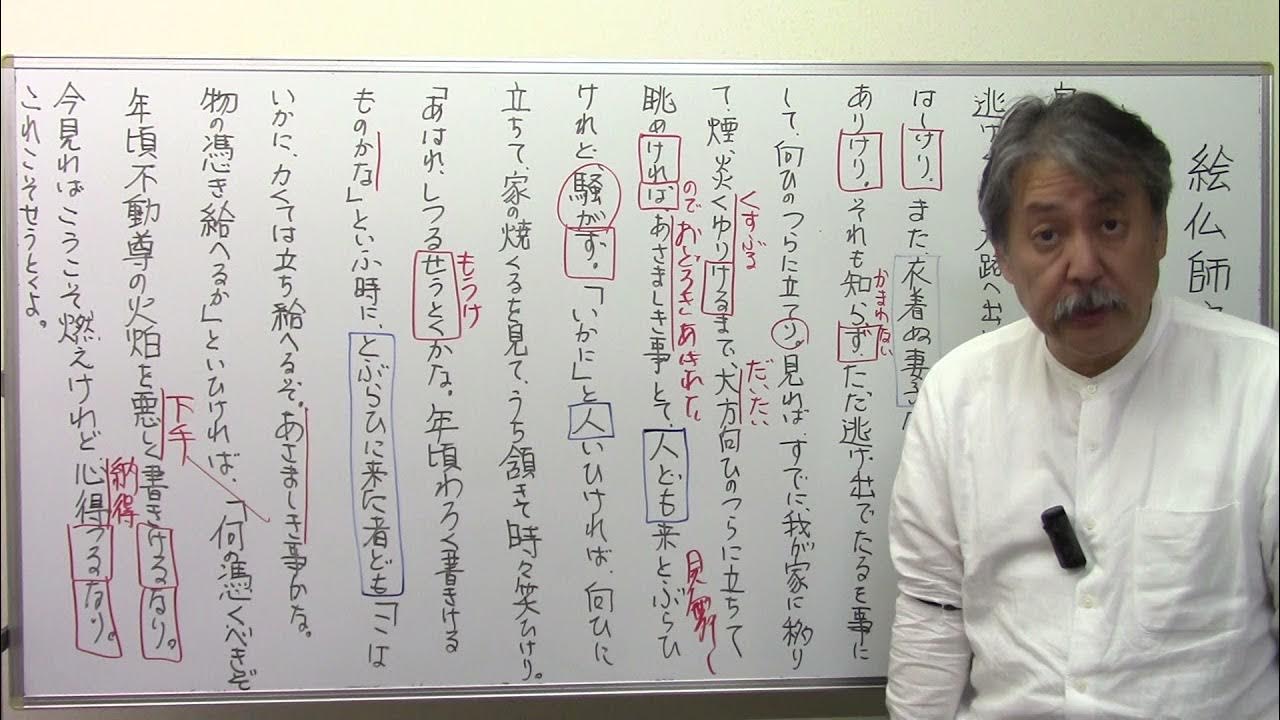 絵仏師
逃げ
路へ出
はしけり。また、衣着ぬ妻子
ありけり。それも知らず、ただ逃げ出でたるを事に
かまわない
して、向ひのつらに立てり。見れば、すでに我が家に移り
て、煙、炎くゆりけるまで、大方向ひのつらに立ちて
くすぶる
だいたい
眺めければ、あさましき事とて、人ども来とぶらひ
ので
おどろきあきれた
見舞い
けれど、騒がず。「いかに」と人いひければ、向ひに
立ちて、家の焼くるを見て、うち頷きて時々笑ひけり。
「あはれ、しつるせうとくかな。年頃わろく書きける
もうけ
ものかな」といふ時に、とぶらひに来た者ども「こは
いかに、かくては立ち給へるぞ。あさましき事かな。
物の憑き給へるか」といひければ、「何の憑くべきぞ
年頃不動尊の火焔を悪しく書きけるなり。
下手
今見ればこうこそ燃えけれど、心得つるなり。
納得
これこそせうとくよ。